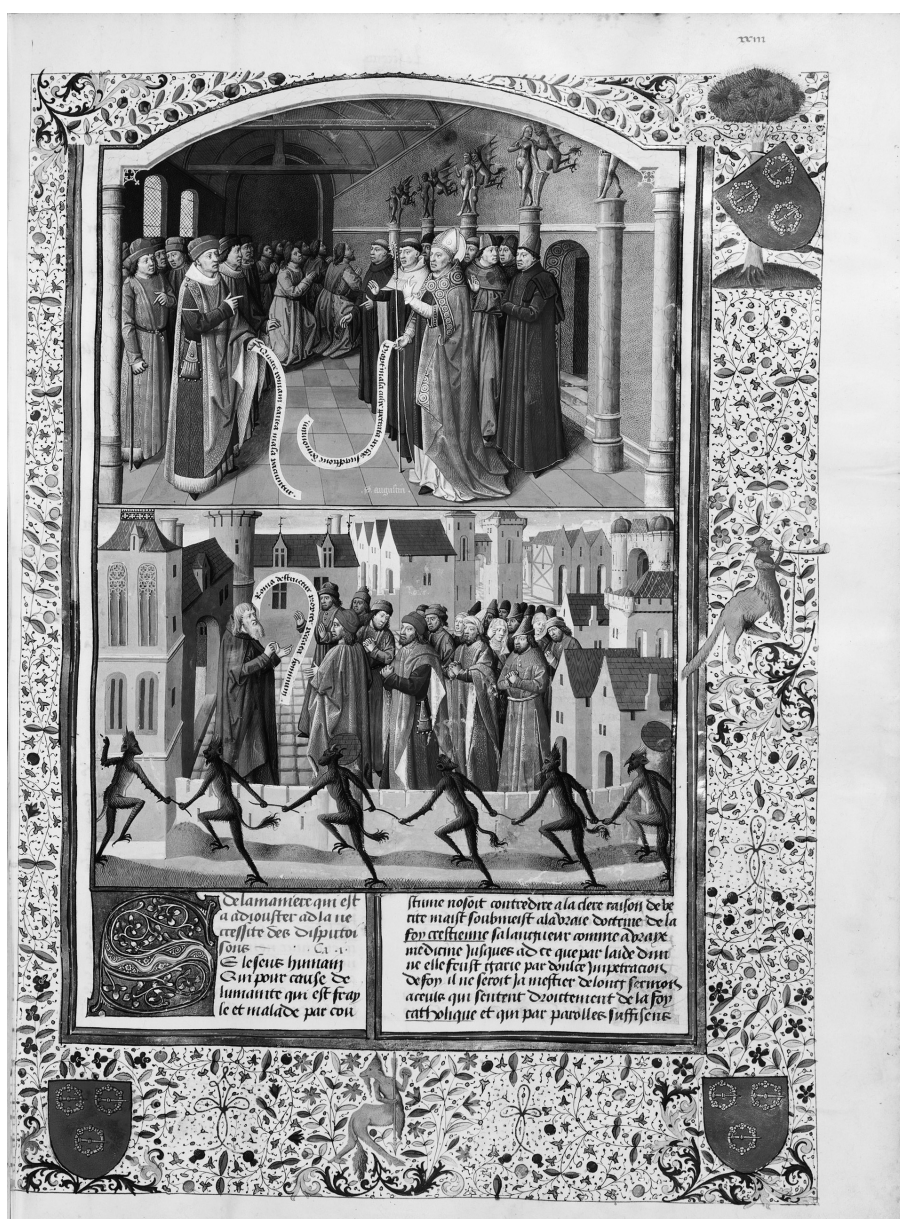 xxiii
romani tanta mala
Propter mala
S. augustin
Roma destruetur propter peccata hominum
De la maniere qui est
a adjouster a la ne
cessite des disputoi
sons
Se le sens humain
Qui pour cause de
lumanite qui est fray
le et malade par cou
stume nosoit contredire a la clere raison de ve
rite maist soubmeist a la vraie doctrine de la
foy crestienne sa langueur comme a vraye
medicine Jusques ad ce que par laide divi
ne elle feust garie par doulce Impetracion
de foy il ne seroit Ja mestier de longs sermons
a ceulx qui sentent droittement de la foy
catholique et qui par parolles suffisens